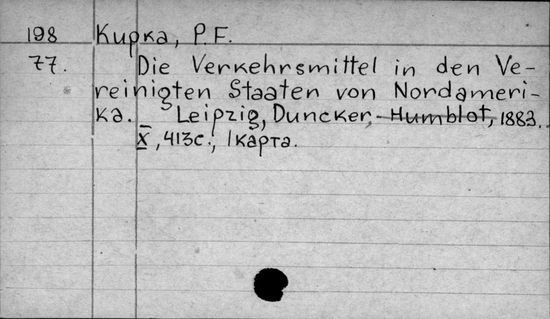 198 Kupka, P.F.
77. Die Verkehrsmittel in den Ve-
reinigten Staaten von Nordameri-
ka. Leipzig, Duncker, Humblot, 1883.
X, 413c., 1карта.